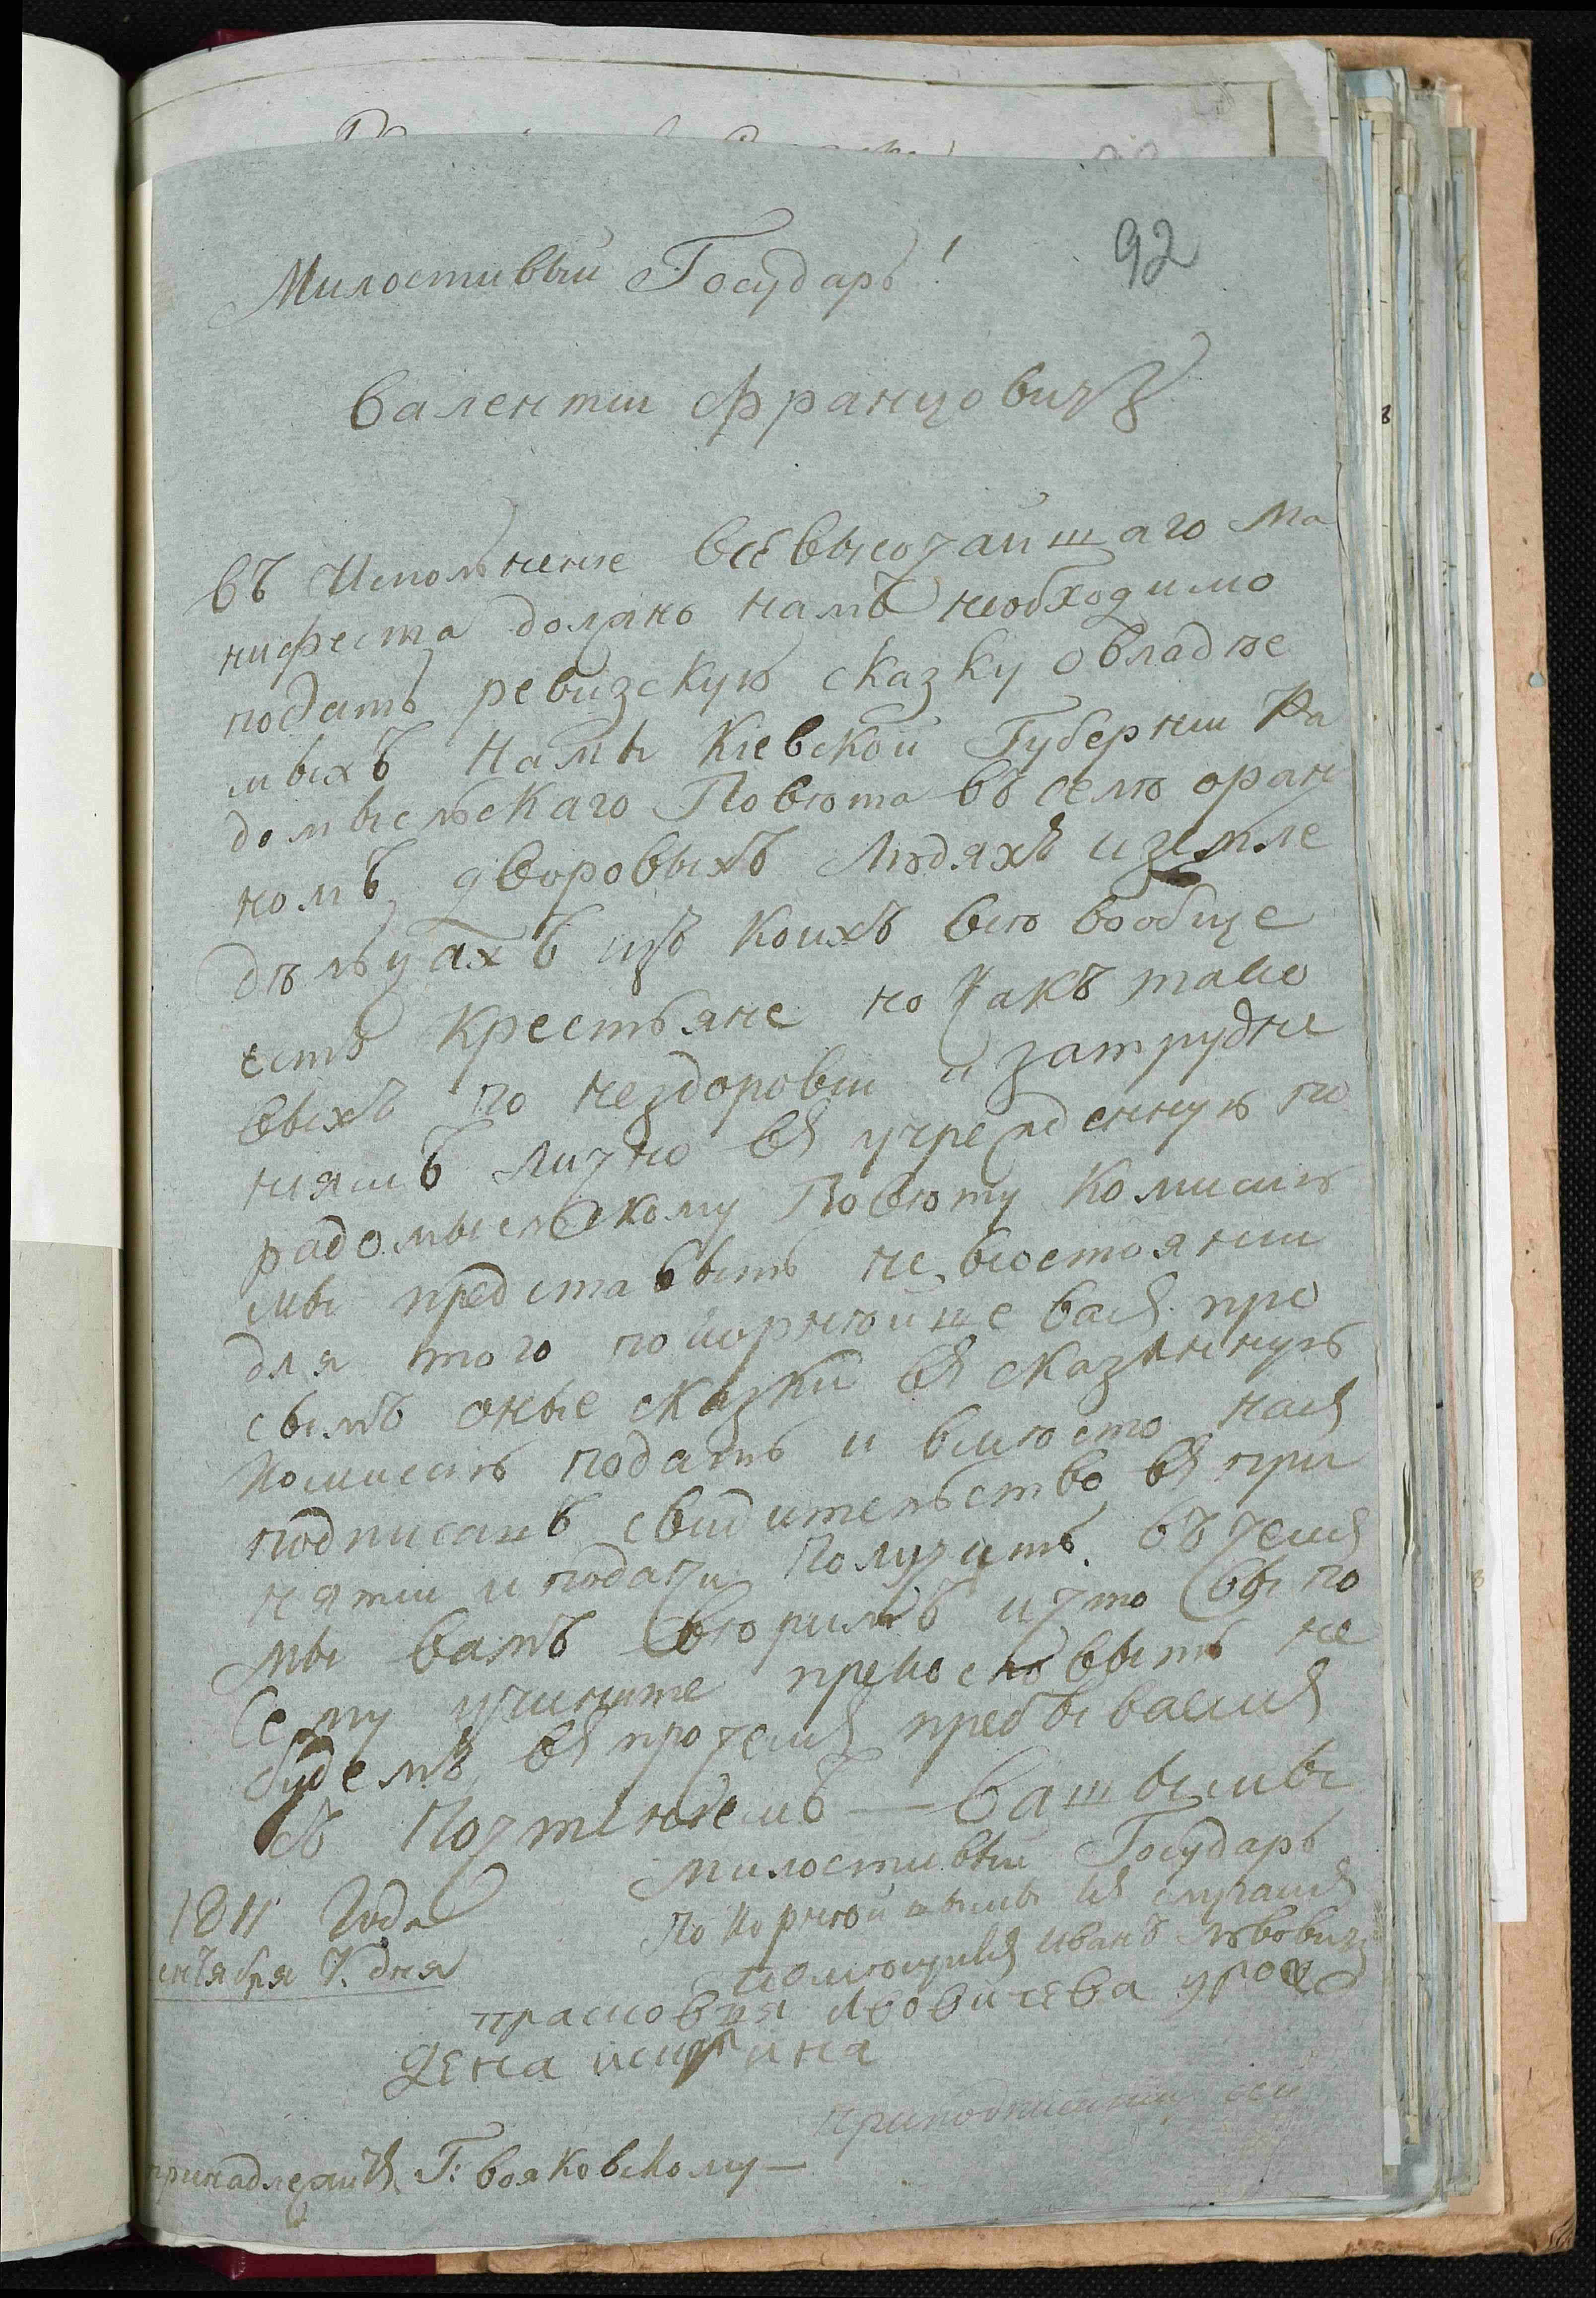 92
Милостивый Государь!
Валентин Францовичъ
Въ Исполнение Всевысочайшаго Ма
нифеста должно намъ необходимо
подать ревизскую сказку овладѣе
мыхъ Намы Кіевской Губернии Ра
домысльскаго Повѣта въ селѣ оран
номъ дворовыхъ Людяхъ и земле
дѣльцахъ изъ коихъ всѣ вообще
есть Крестьяне но какъ тако
выхъ по нездоровїи и затрудне
ниямъ Лично въ учрежденную по
радомысльскому Повѣту Комисию
мы представыть не, всостоянии
для того покорнѣйше васъ про
сымъ оные сказки въ сказанную
Комисию подать и вмѣсто насъ
подписать свидительство въ при
нятии и подачи Получить. въ чемъ
мы вамъ вѣримъ и что Вы по
Сему учините прекословыть не
будемъ въ протчемъ пребываемъ
съ Почтениемъ — вашымы
Милостивый Государь
покорнѣйшымы къ слугамъ
1811 Года
сентября 7. дня
Иванъ Львовичъ
прасковия Лвовичева
Жена
Приподписании сей
принадлежитъ Г: вояковскому —